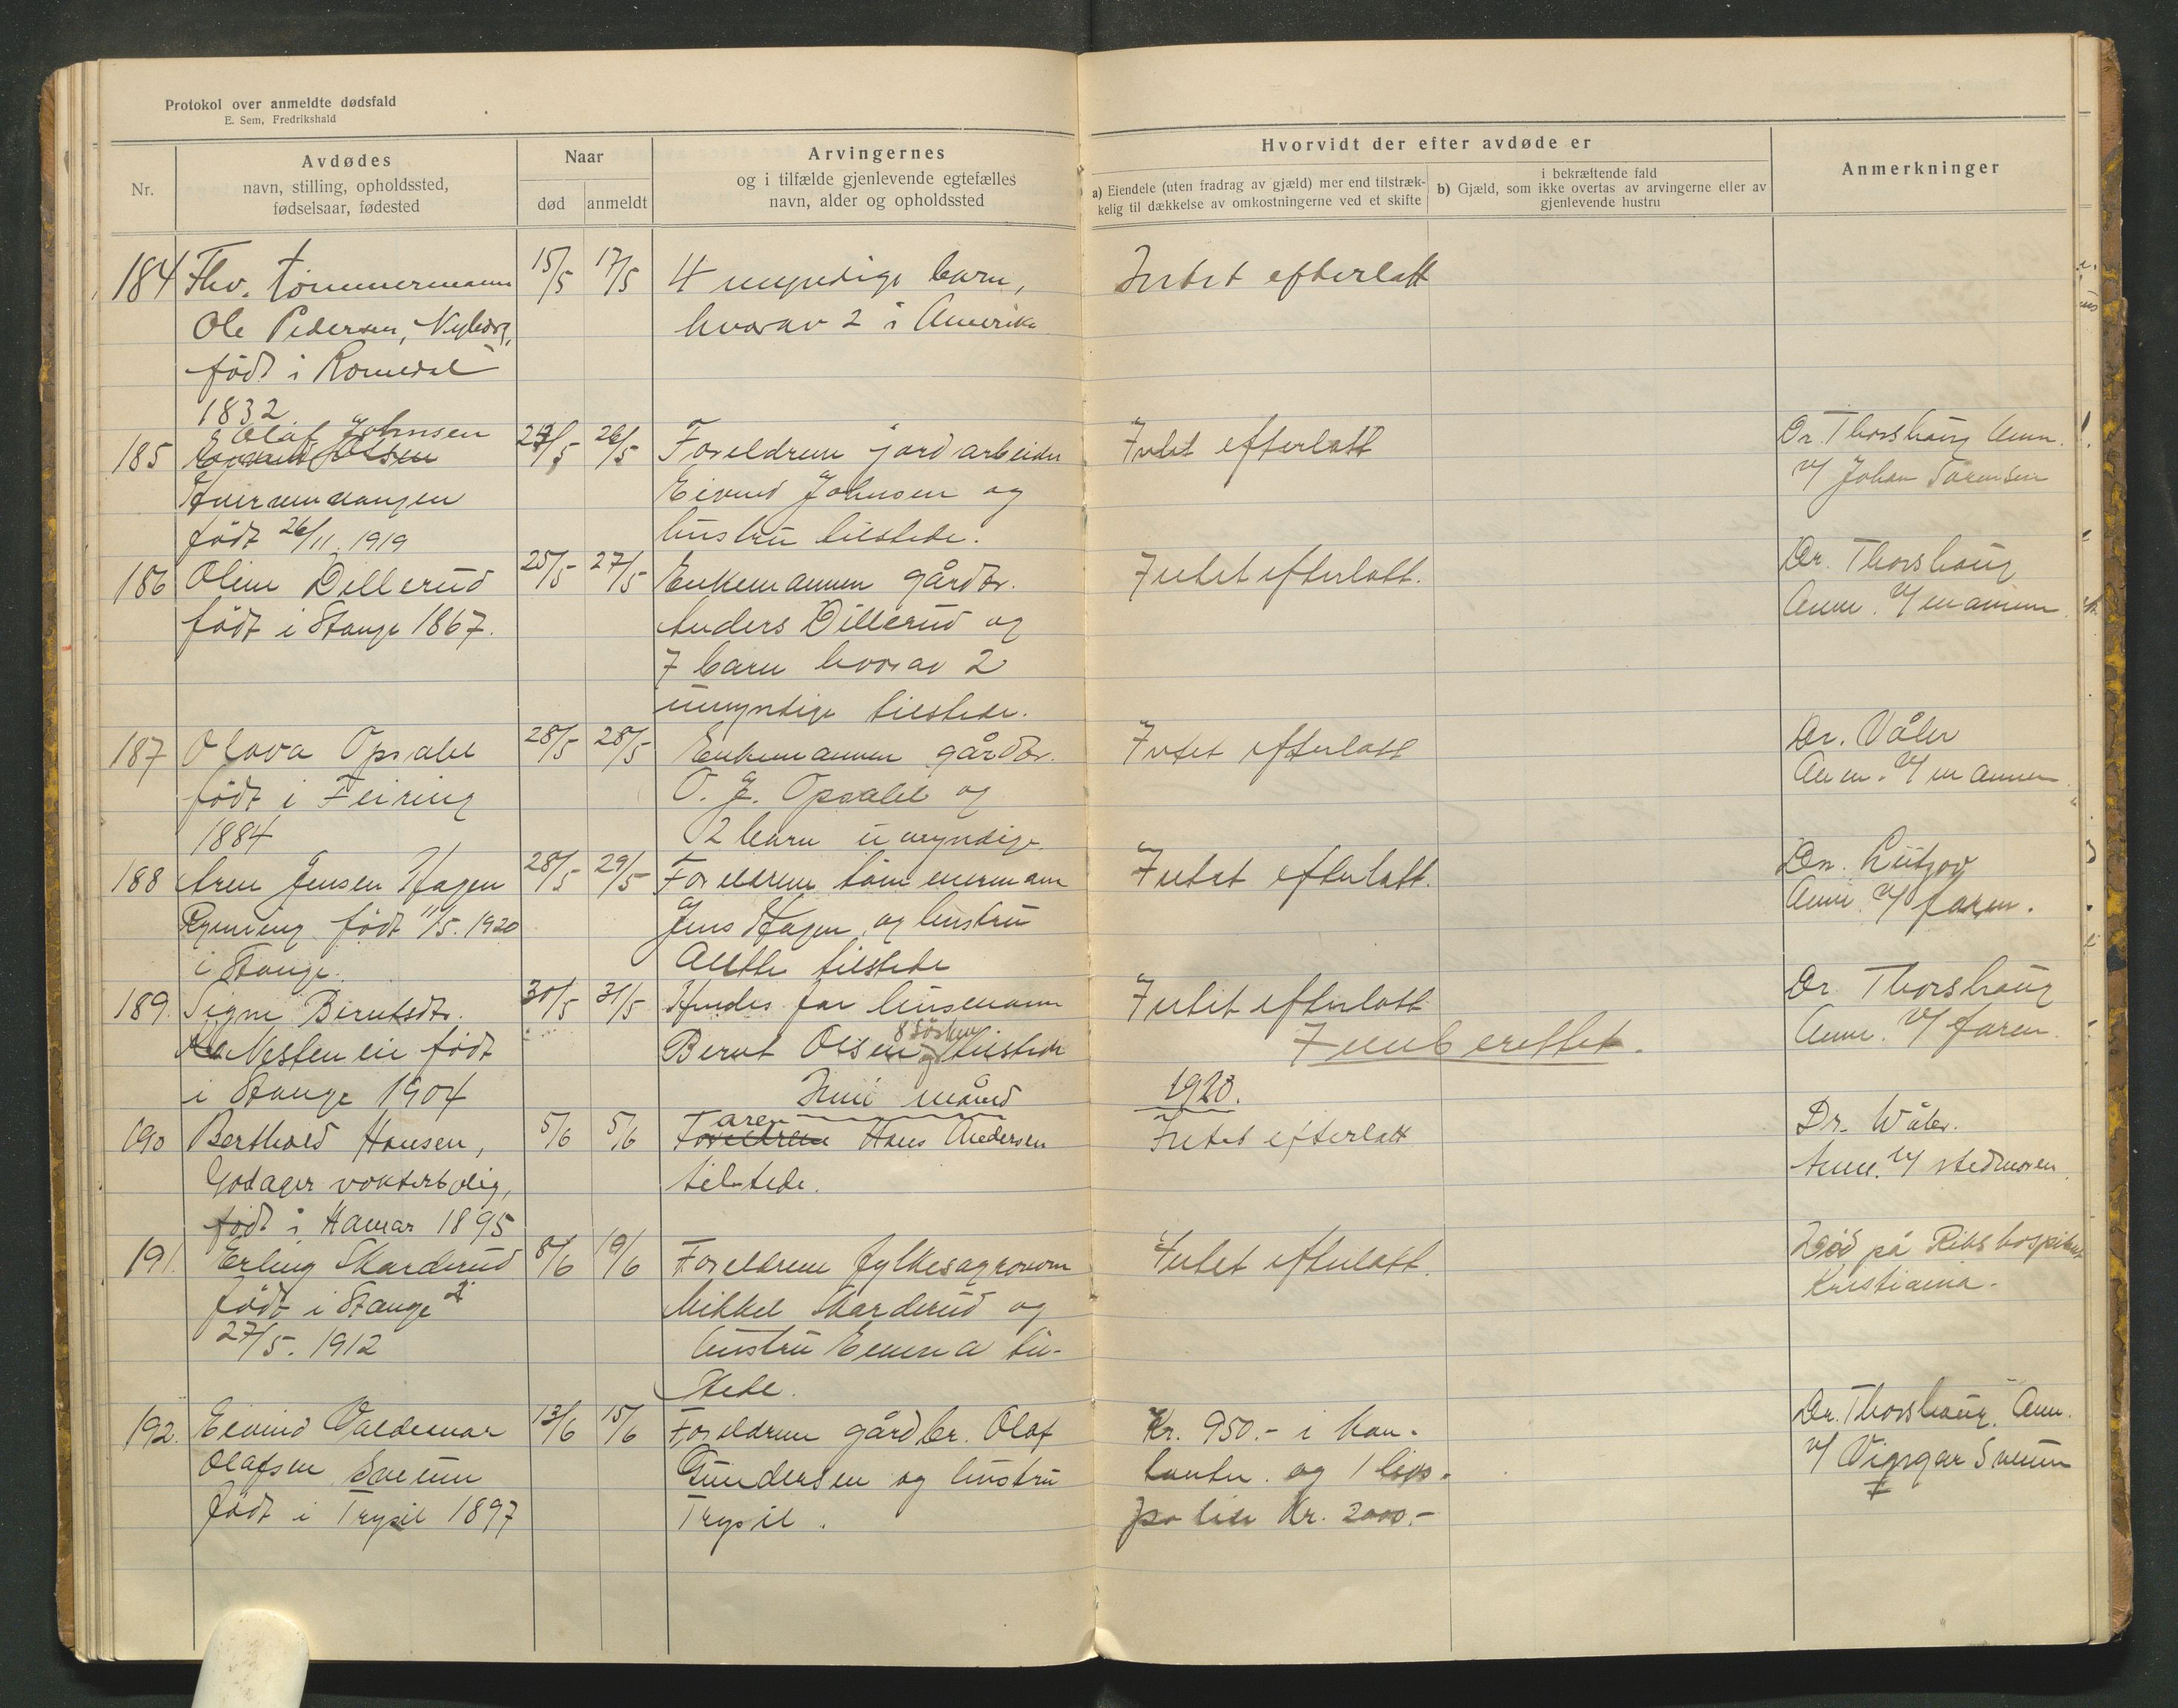 Protokol over anmeldte dødsfald
E. Sem, Fredrikshald
Nr.
Avdødes
navn, stilling, opholdssted,
fødselsaar, fødested
Naar
død
anmeldt
Arvingernes
og i tilfælde gjenlevende egtefælles
navn, alder og opholdssted
Hvorvidt der efter avdøde er
a) Eiendele (uten fradrag av gjæld) mer end tilstræk-
kelig til dækkelse av omkostningerne ved et skifte
i bekræftende fald
b) Gjæld, som ikke overtas av arvingerne eller av
gjenlevende hustru
Anmerkninger
184 Fhv. tømmermann 15/5 17/5 4 myndige barn, Intet efterlatt
Ole Pedersen, Nyborg, hvorav 2 i Amerika
født i Romedal
1832
Olaf Johnsen
185 24/5 26/5 Foreldrene jordarbeider Intet efterlatt Dr. Thorshaug Anm.
Eivind Johnsen og v/ Johan Sørensen
født 26/11. 1919 hustru tilstede.
186 Oline Dillerud 25/5 27/5 Enkemannen gårdbr. Intet efterlatt. Dr. Thorshaug
født i Stange 1867. Anders Dillerud og Anm. v/ mannen.
7 barn hvorav 2
umyndige tilstede.
187 Olava Opsahl 28/5 28/5 Enkemannen gårdbr. Intet efterlatt Dr. Våler
født i Feiring O. J. Opsahl og Anm. v/ mannen
1884 2 barn umyndige
188 Arne Jensen Hagen 28/5 29/5 Foreldrene tømmermann Intet efterlatt. Dr. Lützow
Rønning født 11/5. 1920 Jens Hagen og hustru Anm. v/ faren.
i Stange. Anette tilstede
189. Signe Berntsdtr. 30/5 31/5 Hendes far husmann Intet efterlatt Dr. Thorshaug
Vestenlie født Bernt Olsen og 8 søsken tilstede Innberettet. Anm. v/ faren.
i Stange 1904 Juni måned 1920.
190 Berthold Hansen, 5/6 5/6 Faren Hans Andersen Intet efterlatt Dr. Wåler.
Godager vokterbolig, tilstede. Anm. v/ stedmoren.
født i Hamar 1895
191. Erling Skarderud 8/6 19/6 Foreldrene fylkesagronom Intet efterlatt. Død på Rikshospitalet
født i Stange Mikkel Skarderud og Kristiania.
27/5. 1912 hustru Emma til-
stede.
192. Eivind Valdemar 13/6 15/6 Foreldrene gårdbr. Olaf Kr. 950.- i kon- Dr. Thorshaug. Anm.
Olafsen Sveum Gundersen og hustru tanter. og 1 livs- v/ Viggar Sveum
født i Trysil 1897 Trysil. polise Kr. 2000.-